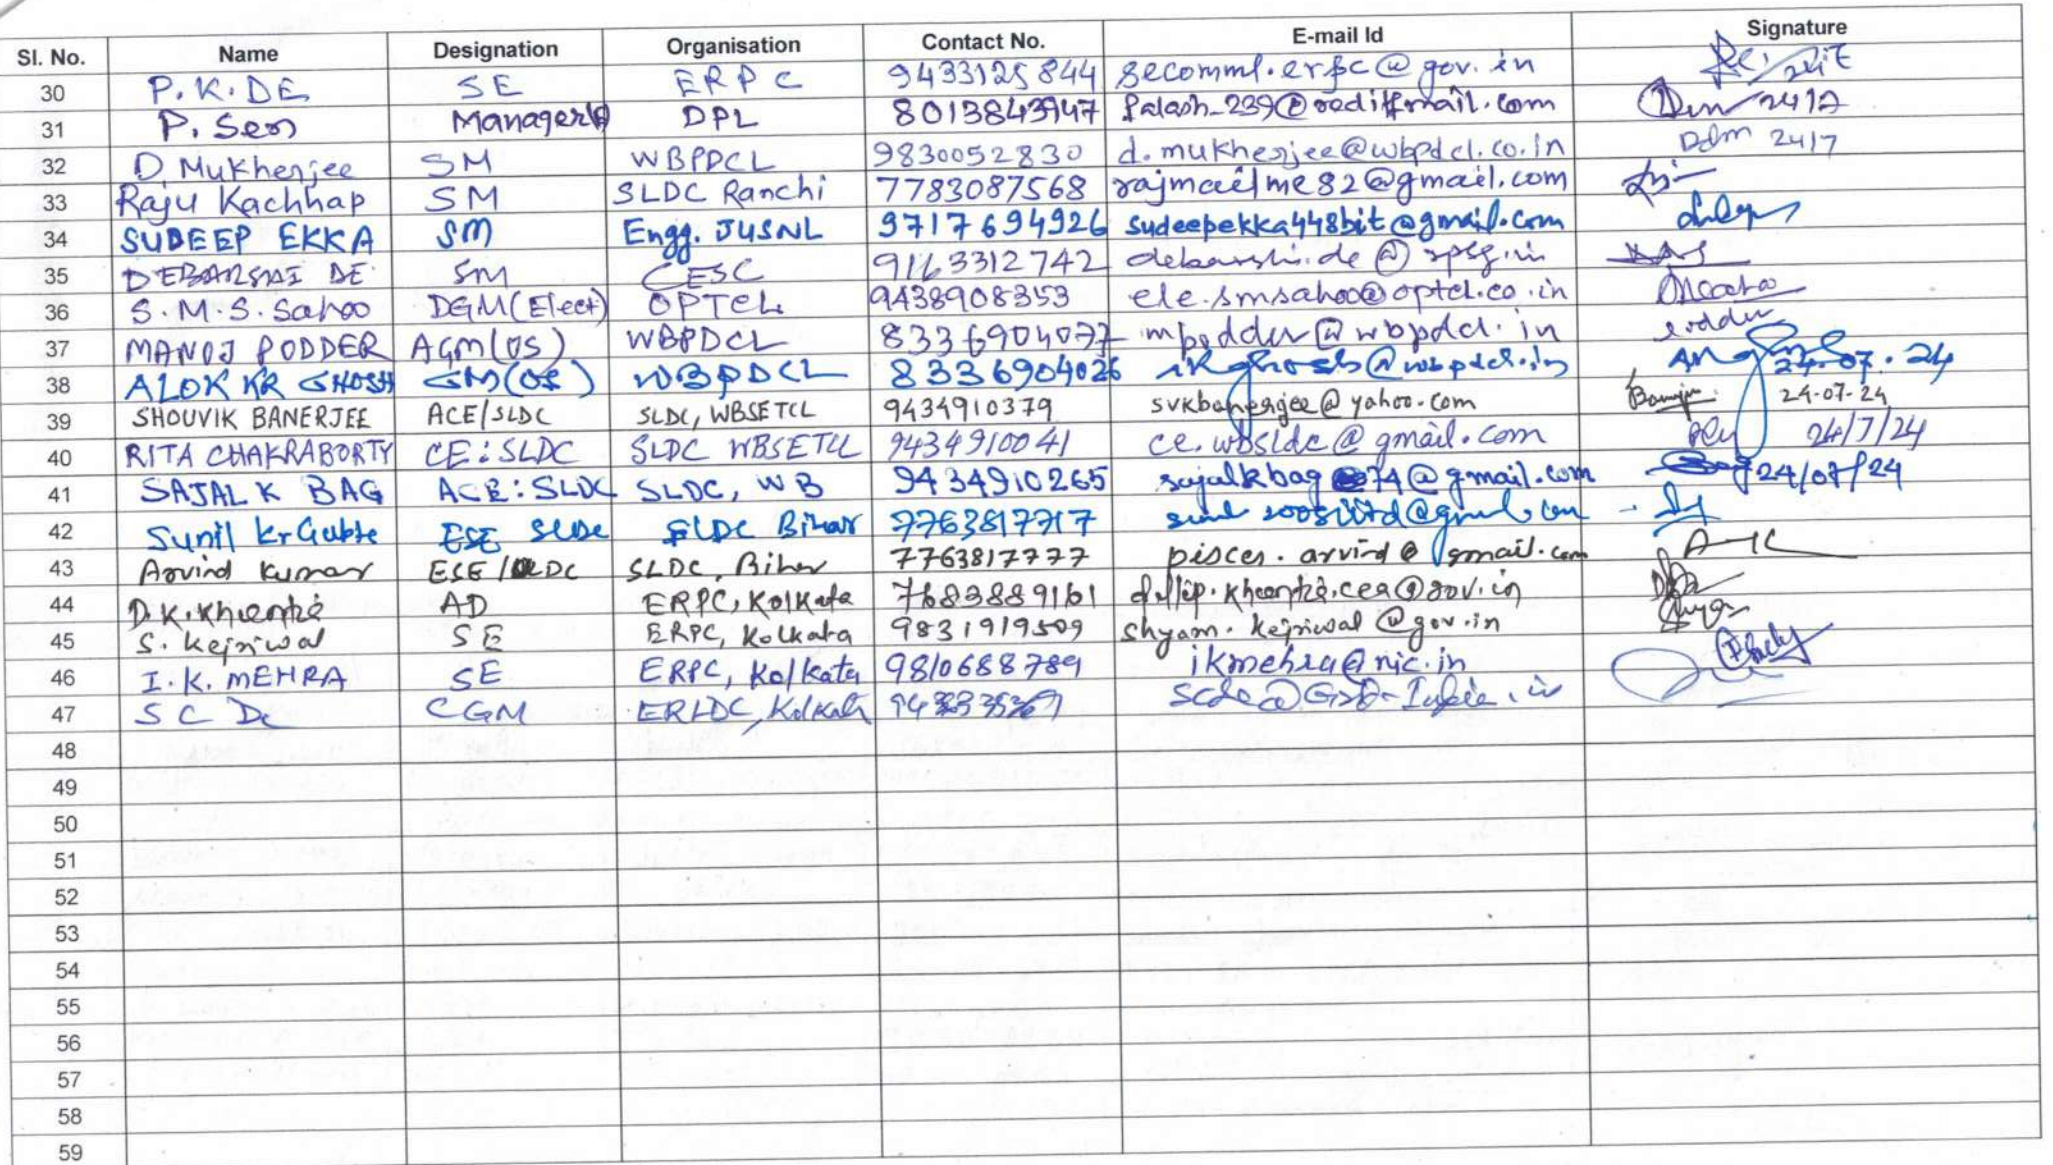 Sl. No. Name Designation Organisation Contact No. E-mail Id Signature
30 P.K.DE SE ERPC 9433125844 secomml.erpc@gov.in
31 P. Sen Manager DPL 8013843947 palash_239@rediffmail.com 2417
32 D Mukherjee SM WBPDCL 9830052830 d.mukherjee@wbpdcl.co.in 2417
33 Raju Kachhap SM SLDC Ranchi 7783087568 rajmailme82@gmail.com
34 SUDEEP EKKA SM Engg. JUSNL 9717694926 sudeepekka448bit@gmail.com
35 DEBARSHI DE SM CESC 9163312742 debarshi.de@rpsg.in
36 S.M.S. Sahoo DGM(Elect) OPTCL 9438908353 ele.smsahoo@optcl.co.in
37 MANOJ PODDER AGM(OS) WBPDCL 8336904077 mpodder@wbpdcl.in
38 ALOK KR GHOSH GM(OS) WBPDCL 8336904026 24.07.24
39 SHOUVIK BANERJEE ACE/SLDC SLDC, WBSETCL 9434910379 svkbanerjee@yahoo.com 24-07-24
40 RITA CHAKRABORTY CE:SLDC SLDC WBSETCL 9434910041 ce.wbsldc@gmail.com 24/7/24
41 SAJAL K BAG ACE:SLDC SLDC, WB 9434910265 sajalkbag74@gmail.com 24/07/24
42 Sunil Kr Gupta ESE SLDC SLDC Bihar 7763817717
43 Arvind Kumar ESE/SLDC SLDC, Bihar 7763817777 pisces.arvind@gmail.com
44 D.K. AD ERPC, Kolkata 7683889161
45 S. Kejriwal SE ERPC, Kolkata 9831919509 shyam.kejriwal@gov.in
46 I.K. MEHRA SE ERPC, Kolkata 9810688789 ikmehra@nic.in
47 S C De CGM ERLDC, Kolkata
48
49
50
51
52
53
54
55
56
57
58
59